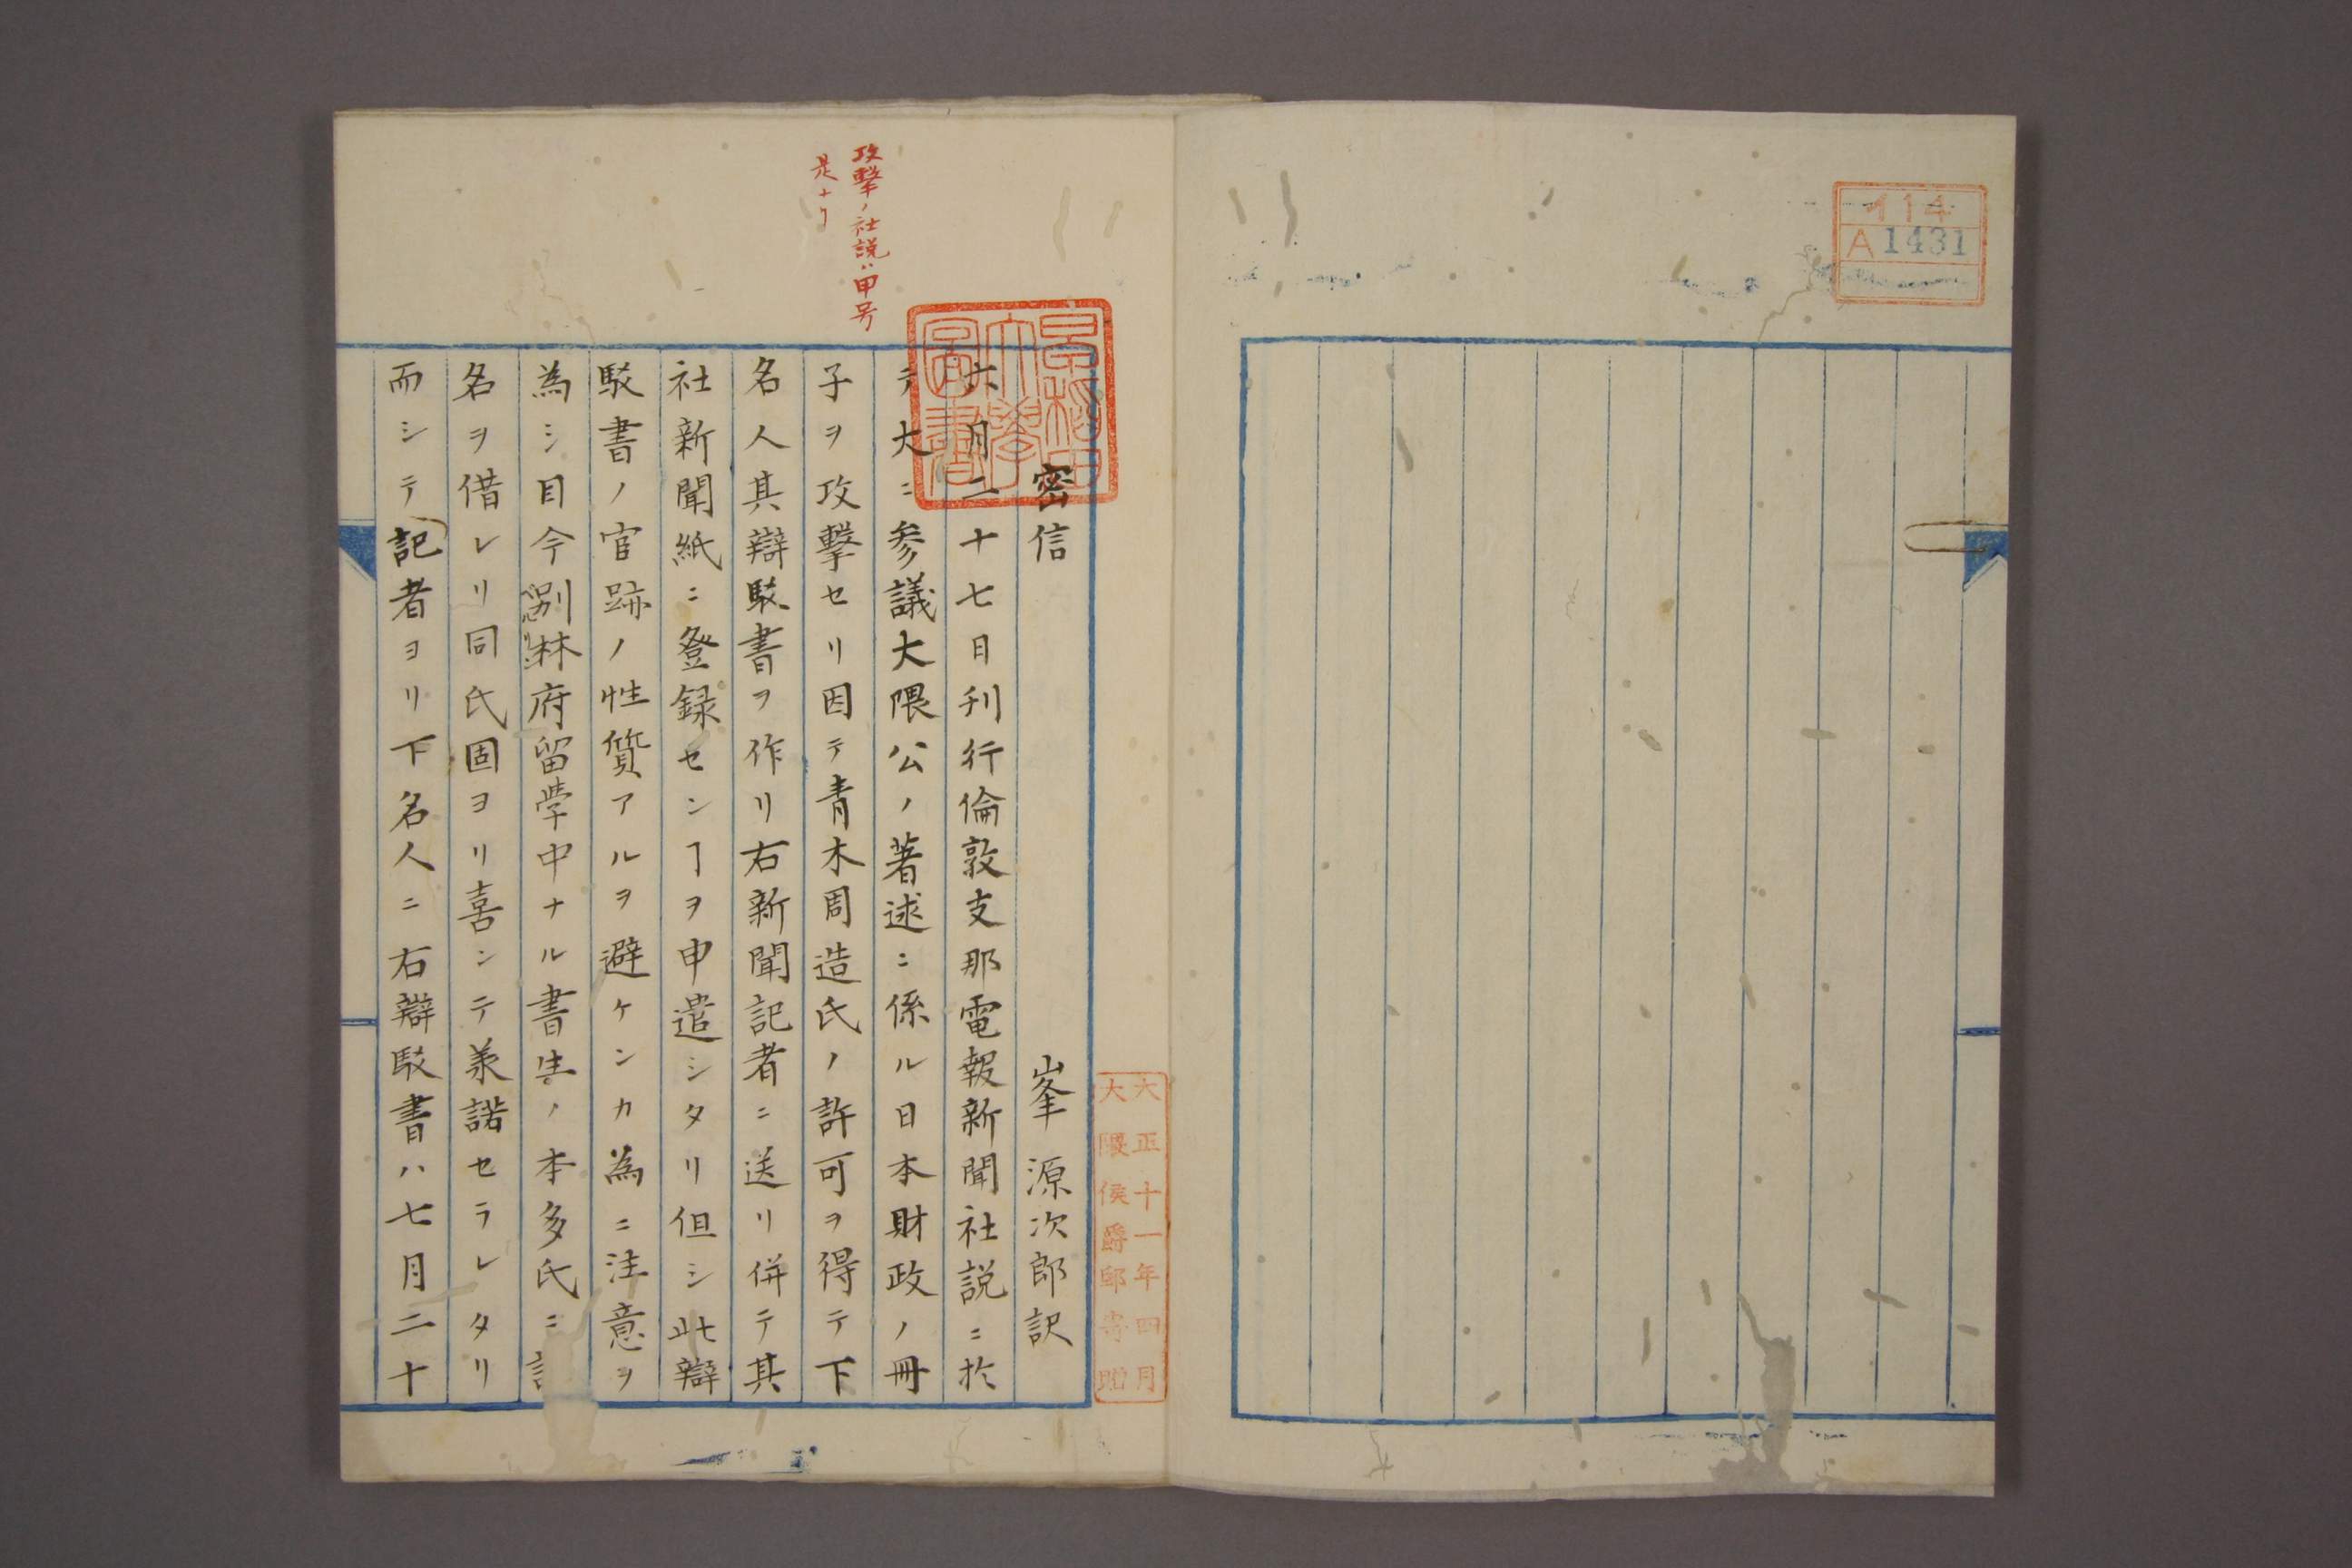 114
A 1431
大正十一年四月
大隈侯爵邸寄贈
早稲田大学図書
密信
峯源次郎訳
六月二十七日刊行倫敦支那電報新聞社説ニ於
テ大ニ参議大隈公ノ著述ニ係ル日本財政ノ冊
子ヲ攻撃セリ因テ青木周造氏ノ許可ヲ得テ下
名人其辯駁書ヲ作リ右新聞記者ニ送リ併テ其
社新聞紙ニ登録センヿヲ申遣シタリ但シ此辯
駁書ノ官跡ノ性質アルヲ避ケンカ為ニ注意ヲ
為シ目今別林府留学中ナル書生ノ本多氏ニ
名ヲ借レリ同氏固ヨリ喜ンテ承諾セラレタリ
而シテ記者ヨリ下名人ニ右辯駁書ハ七月二十
攻撃ノ社説ハ甲号
是ナリ